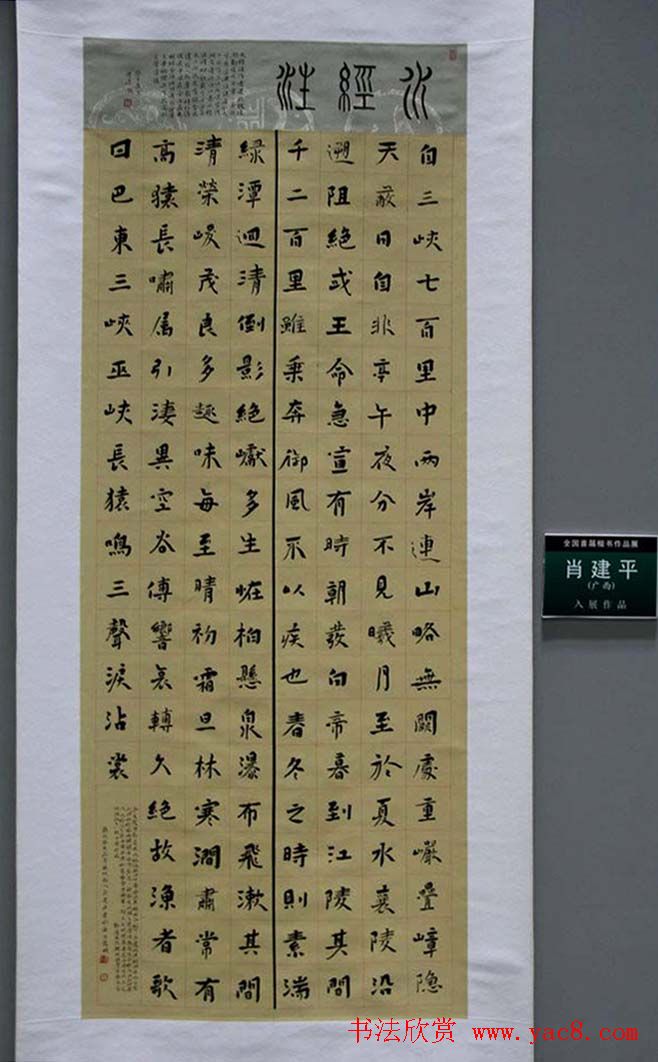 水經注
自三峽七百里中兩岸連山略無闕處重巖疊嶂隱
天蔽日自非亭午夜分不見曦月至於夏水襄陵沿
遡阻絕或王命急宣有時朝發白帝暮到江陵其間
千二百里雖乘奔御風不以疾也春冬之時則素湍
綠潭迴清倒影絕巘多生怪柏懸泉瀑布飛漱其間
清榮峻茂良多趣味每至晴初霜旦林寒澗肅常有
高猿長嘯屬引淒異空谷傳響哀轉久絕故漁者歌
曰巴東三峽巫峽長猿鳴三聲淚沾裳
全国首届楷书作品展
肖建平
(广西)
入展作品
书法欣赏 www.yac8.com